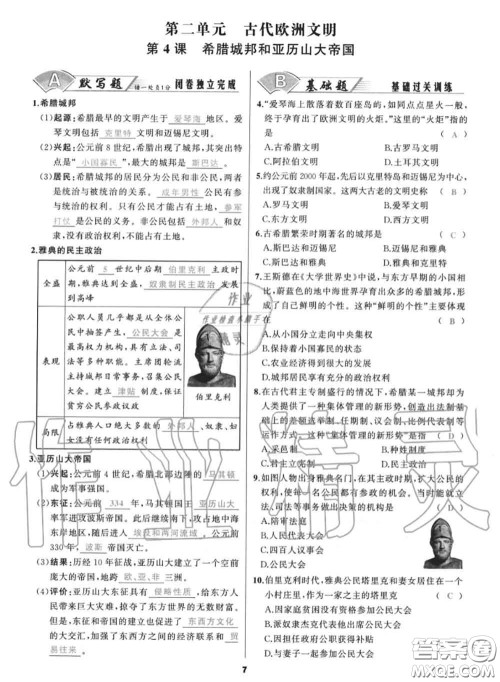 第二单元　古代欧洲文明
第4课　希腊城邦和亚历山大帝国
A 默写题 错一处扣1分 闭卷独立完成
1.希腊城邦
(1)起源:希腊最早的文明产生于 爱琴海 地区。爱
琴文明包括 克里特 文明和迈锡尼文明。
(2)兴起:公元前8世纪,希腊出现了城邦,其突出特
点是“小国寡民”,最大的城邦是 斯巴达 。
(3)居民:希腊城邦的居民分为公民和非公民,两者
是统治与被统治的关系。 成年男性 公民有参
与统治的权利。只有公民才能占有土地, 参军
打仗 是公民的义务。非公民包括 外邦人 和奴
隶,没有政治权利,不能占有土地。
2.雅典的民主政治
全盛
公元前 5 世纪中后期 伯里克利 主政时
期,雅典达到全盛, 奴隶制民主政治 发展
到高峰
表现
公职人员几乎都是从全体公
民中抽签产生, 公民大会 是
最高权力机构,具有立法、司
法等多种职能。主席团轮流
主持城邦日常事务,召集公民
大会。建立 津贴 制度,保证
贫穷公民参政议政
伯里克利
局限
占雅典人口绝大多数的 外邦人 、奴隶、妇
女没有任何政治权利
3.亚历山大帝国
(1)兴起:公元前4世纪,希腊北部边陲的 马其顿
成为军事强国。
(2)东征:公元前 334 年,马其顿国王 亚历山大
率军进攻波斯帝国。此后继续南下,攻占地中海
东岸地区,随后进入 埃及和两河流域 。公元前
330年, 波斯 帝国灭亡。
(3)结果:历经10年征战,亚历山大建立了一个空前
庞大的帝国,地跨 欧、亚、非 三洲。
(4)评价:亚历山大东征具有 侵略性质 ,给东方人
民带来深重灾难,掠夺了东方世界的无数财富。
但是,亚历山大帝国的建立也促进了 东西方文化
的大交汇,加强了东西方之间的经济联系和 贸
易往来 。
B 基础题 基础过关训练
4.“爱琴海上散落着数百座岛屿,如同点点星火一般,
终于孕育出了欧洲文明的火炬。”这里的“火炬”指的
是 ( A )
A.古希腊文明 B.古罗马文明
C.阿拉伯文明 D.土耳其文明
5.约公元前2000年起,先后以克里特岛和迈锡尼为中心,
出现了奴隶制国家。这两大古老的文明史称 ( B )
A.罗马文明 B.爱琴文明
C.东方文明 D.西方文明
6.古希腊繁荣时期著名的城邦是 ( C )
A.斯巴达和迈锡尼 B.迈锡尼和雅典
C.斯巴达和雅典 D.雅典和克里特
7.王斯德在《大学世界史》中说,与东方早期的小国相
比,蔚蓝色的地中海世界孕育出众多的希腊城邦,形
成了自己鲜明的个性。这种“鲜明的个性”主要体现
在 ( B )
A.从小国分立走向中央集权
B.保持着小国寡民的状态
C.农业经济得到很大的发展
D.城邦居民享有充分的政治权利
8.在古代君主专制盛行的情况下,希腊某一城邦却为
人类提供了一种集体管理的新形势,创造出法治基
础上的差额选举制、任期制、议会制、比例代表制等
运作方式。材料中“集体管理的新形势”是 ( D )
A.采邑制 B.种姓制度
C.君主立宪制 D.民主制
9.如图人物出身雅典名门,在其主政时期,扩大公民的
政治权利,使每一名公民都有可能参与国家政治生活,
司法等事务做出决策的机构是 ( B )
A.陪审法庭
B.人民代表大会
C.四百人议事会
D.公民大会
10.伯里克利时代,雅典公民塔里克和妻女居住在一个
小村庄里,作为一家之主的塔里克 ( C )
A.因家庭贫困没有资格参加公民大会
B.派奴隶杰克代替他出席公民大会
C.有权参加公民大会
D.因为居住地偏远无法参加公民大会
7